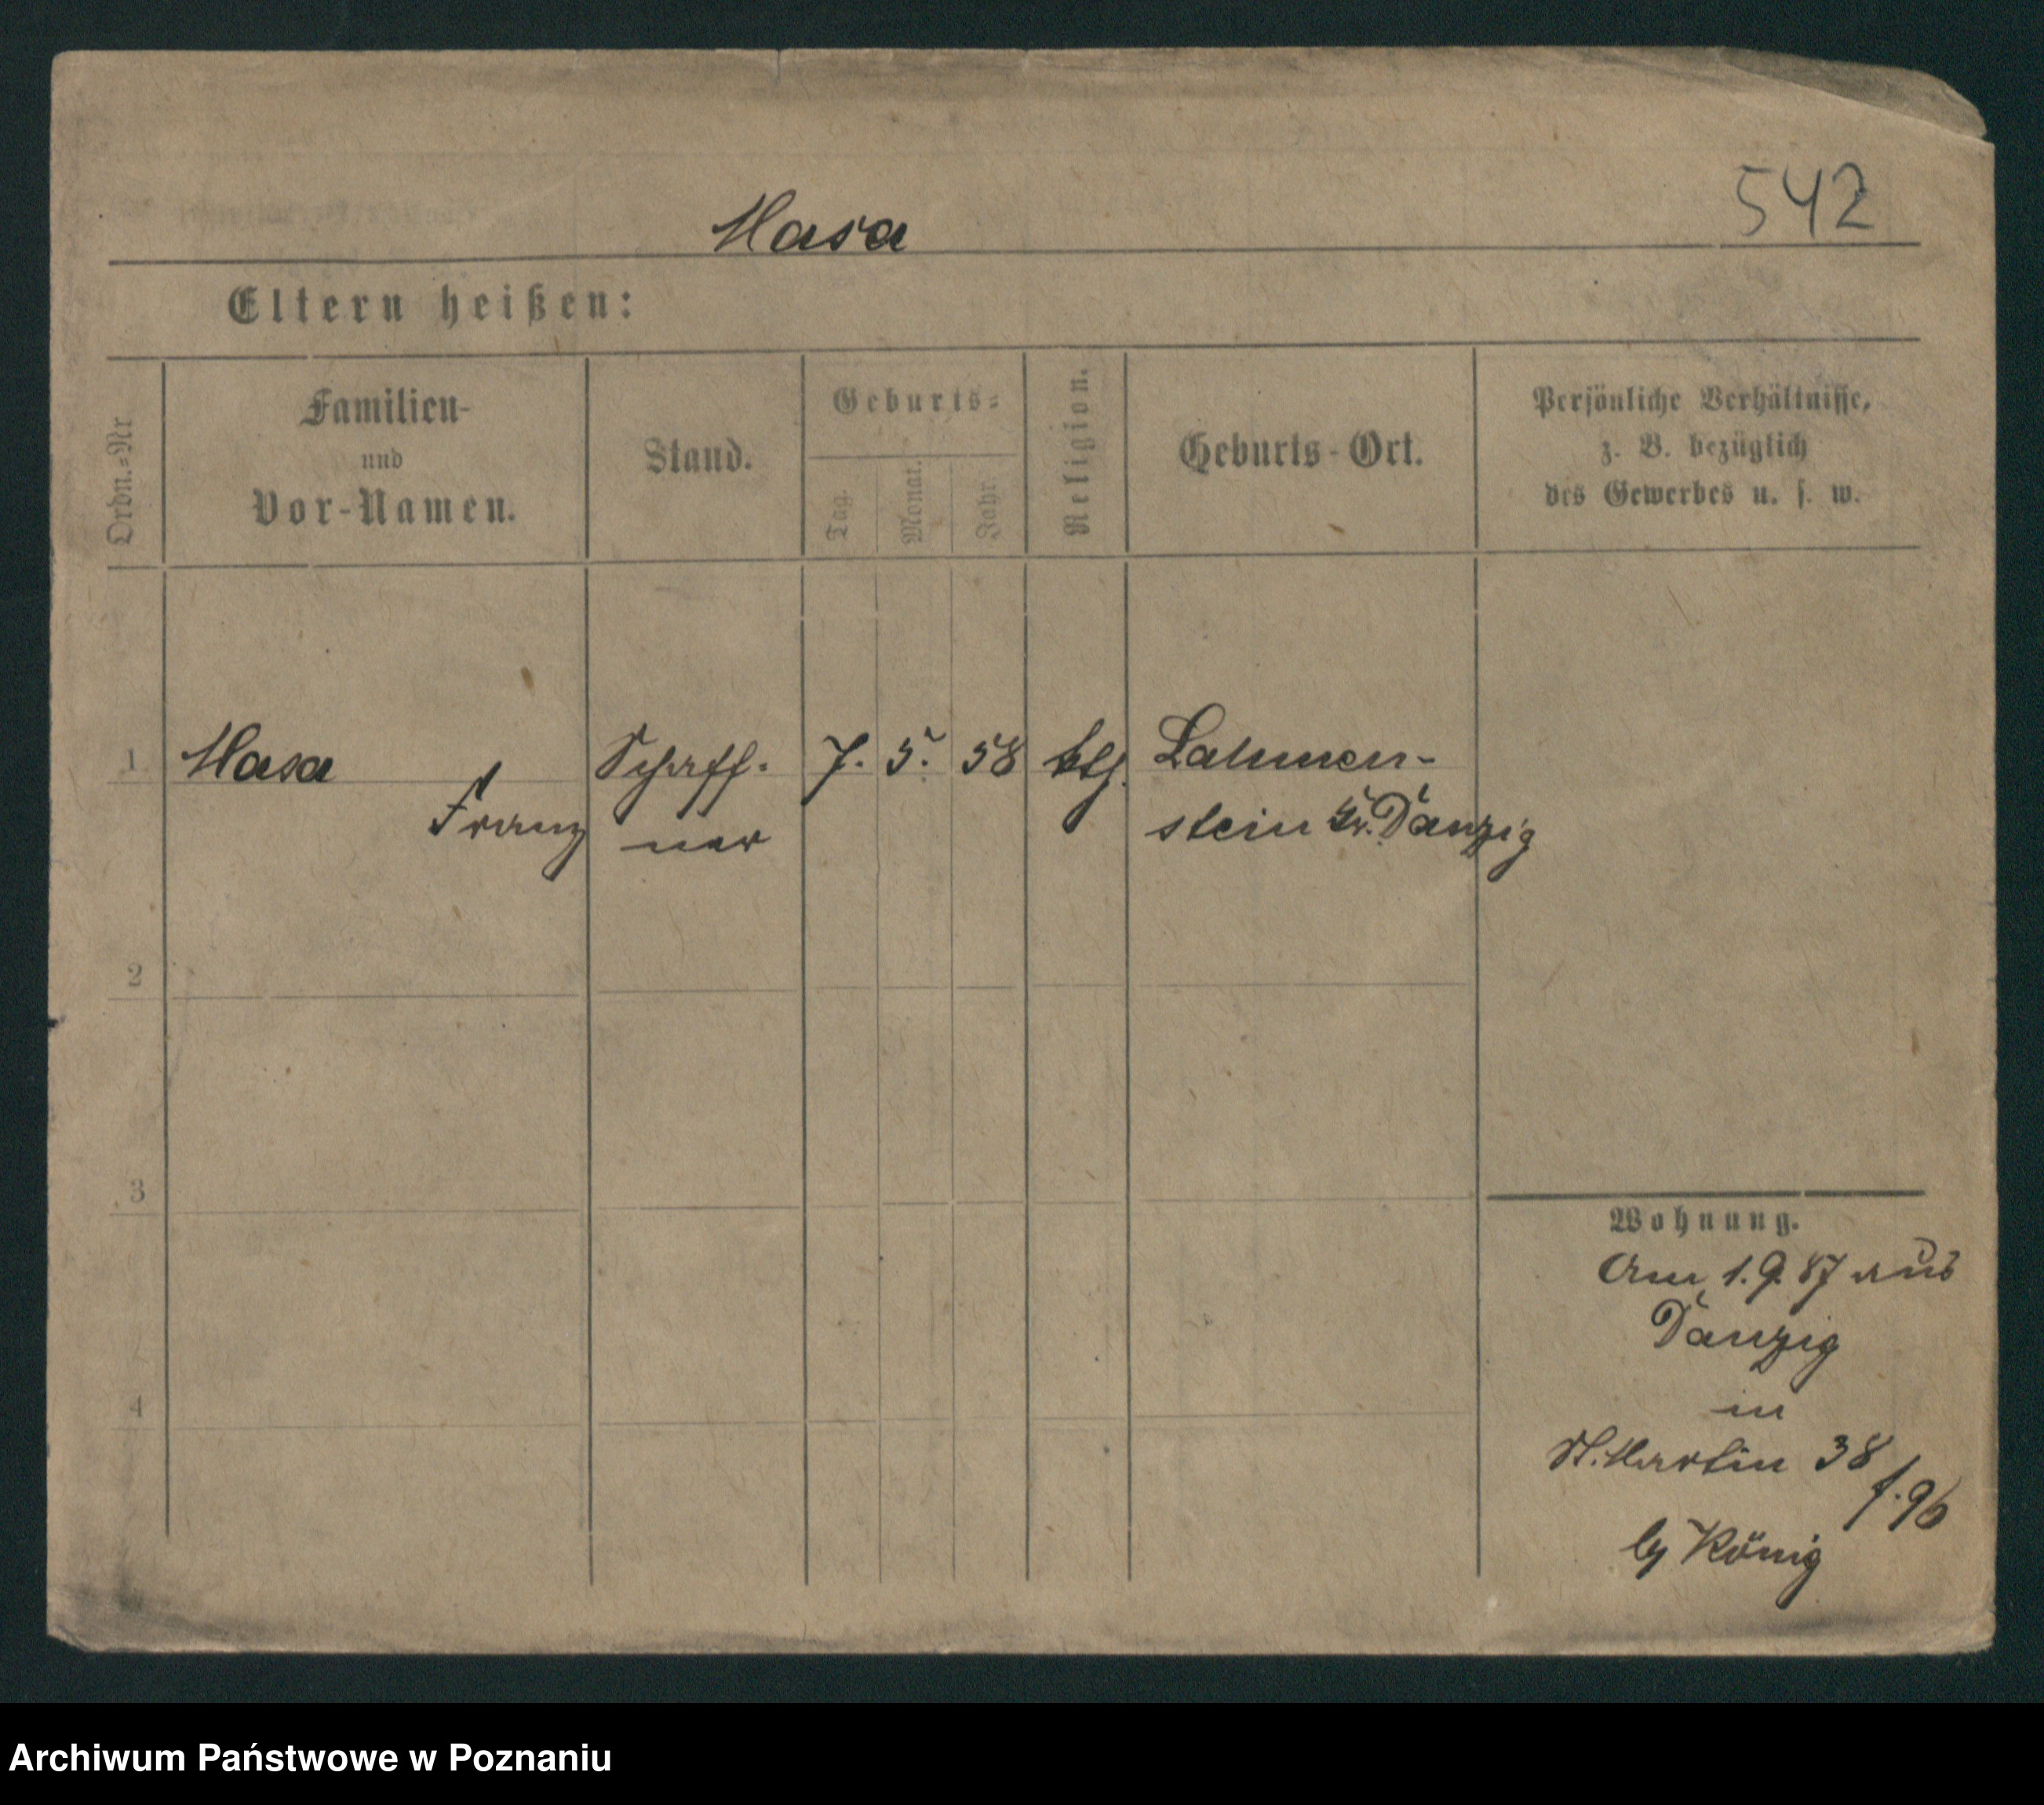 542
Masa
Eltern heißen:
Ordn.-Nr
Familien-
und
Vor-Namen.
Stand.
Geburts-
Tag.
Monat.
Jahr.
Religion.
Geburts-Ort.
Persönliche Verhältnisse,
z. B. bezüglich
des Gewerbes u. s. w.
1 Masa Schaff- 7. 5. 58 kth. Lahmen-
Franz ner stein Kr. Danzig
2
3
4
Wohnung.
Am 1.9.87 aus
Danzig
in
St. Martin 38
f. 96
by König
Archiwum Państwowe w Poznaniu